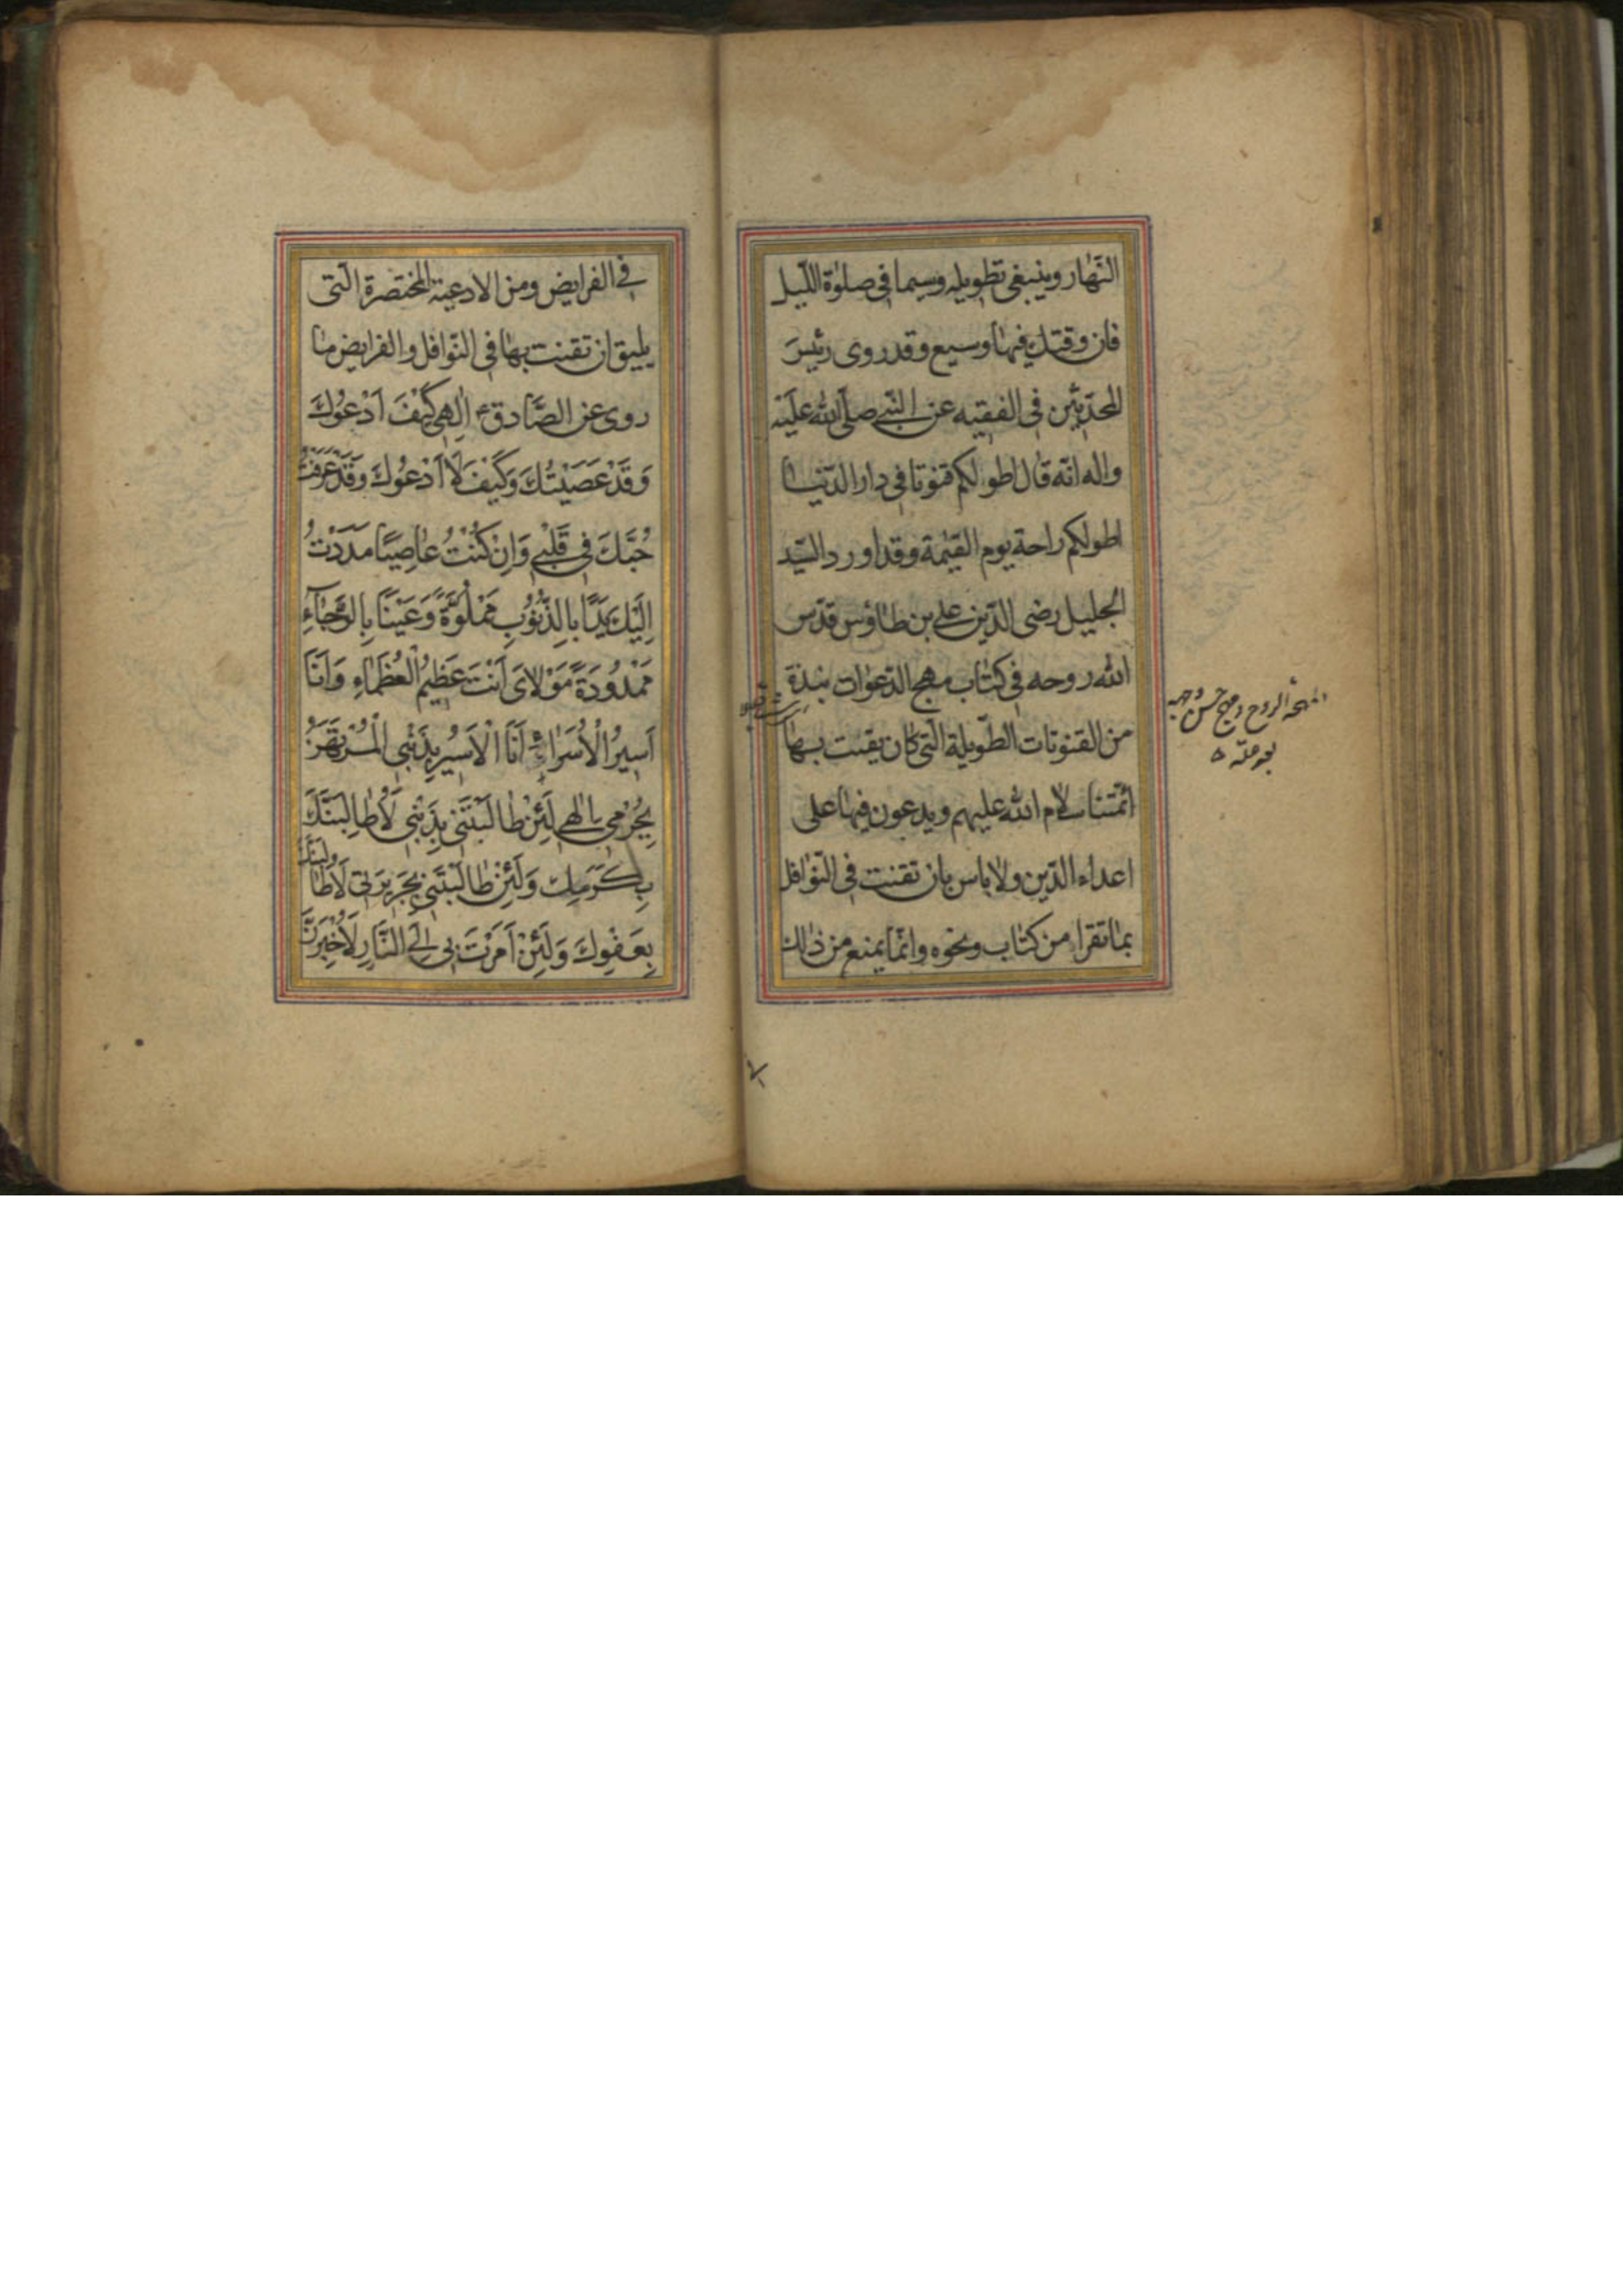 النّهار وينبغى تطويله وسيما فى صلوٰة اللّيل
فان وقتك فيها وسيع وقد روى رئيس
المحدّثين فى الفقيه عن النّبى صلّى الله عليه
واله انّه قال اطولكم قنوتا فى دار الدّنيا
اطولكم راحة يوم القيٰمة وقد اورد السّيد
الجليل رضى الدّين على بن طاؤس قدّس
الله روحه فى كتاب مهج الدّعوات نبذة
من القنوتات الطّويلة الّتى كان يقنت بها
ائمّتنا سلام الله عليهم ويدعون فيها على
اعداء الدّين ولا باس بان تقنت فى النّوافل
بما تقرا من كتاب ونحوه وانّما يمنع من ذلك
فى الفرايض ومن الادعية المختصرة الّتى
يليق ان تقنت بها فى النّوافل والفرايض ما
روى عن الصّادق ع اِلٰهى كَيْفَ اَدْعُوكَ
وَقَدْ عَصَيْتُكَ وَكَيْفَ لَا اَدْعُوكَ وَقَدْ عَرَفْتُ
حُبَّكَ فى قَلْبى وَاِنْ كُنْتُ عاصِيًا مَدَدْتُ
اِلَيْكَ يَدًا بِالذُّنُوبِ مَمْلُوَّةً وَعَيْنًا بِالرَّجآءِ
مَمْدُودَةً مَوْلاىَ اَنْتَ عَظيمُ الْعُظَمآءِ وَاَنَا
اَسيرُ الْاُسَرآءِ اَنَا الْاَسيرُ بِذَنْبى الْمُرْتَهَنُ
بِجُرْمى اِلٰهى لَئِنْ طالَبْتَنى بِذَنْبى لَاُطالِبَنَّكَ
بِكَرَمِكَ وَلَئِنْ طالَبْتَنى بِجَريرَتى لَاُطالِبَنَّكَ
بِعَفْوِكَ وَلَئِنْ اَمَرْتَ بى اِلَى النّارِ لَاُخْبِرَنَّ